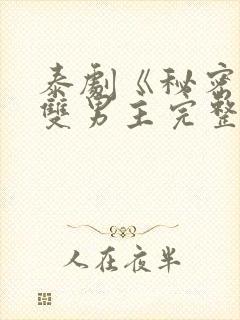 泰劇《秘密
雙男主完整
人在夜半